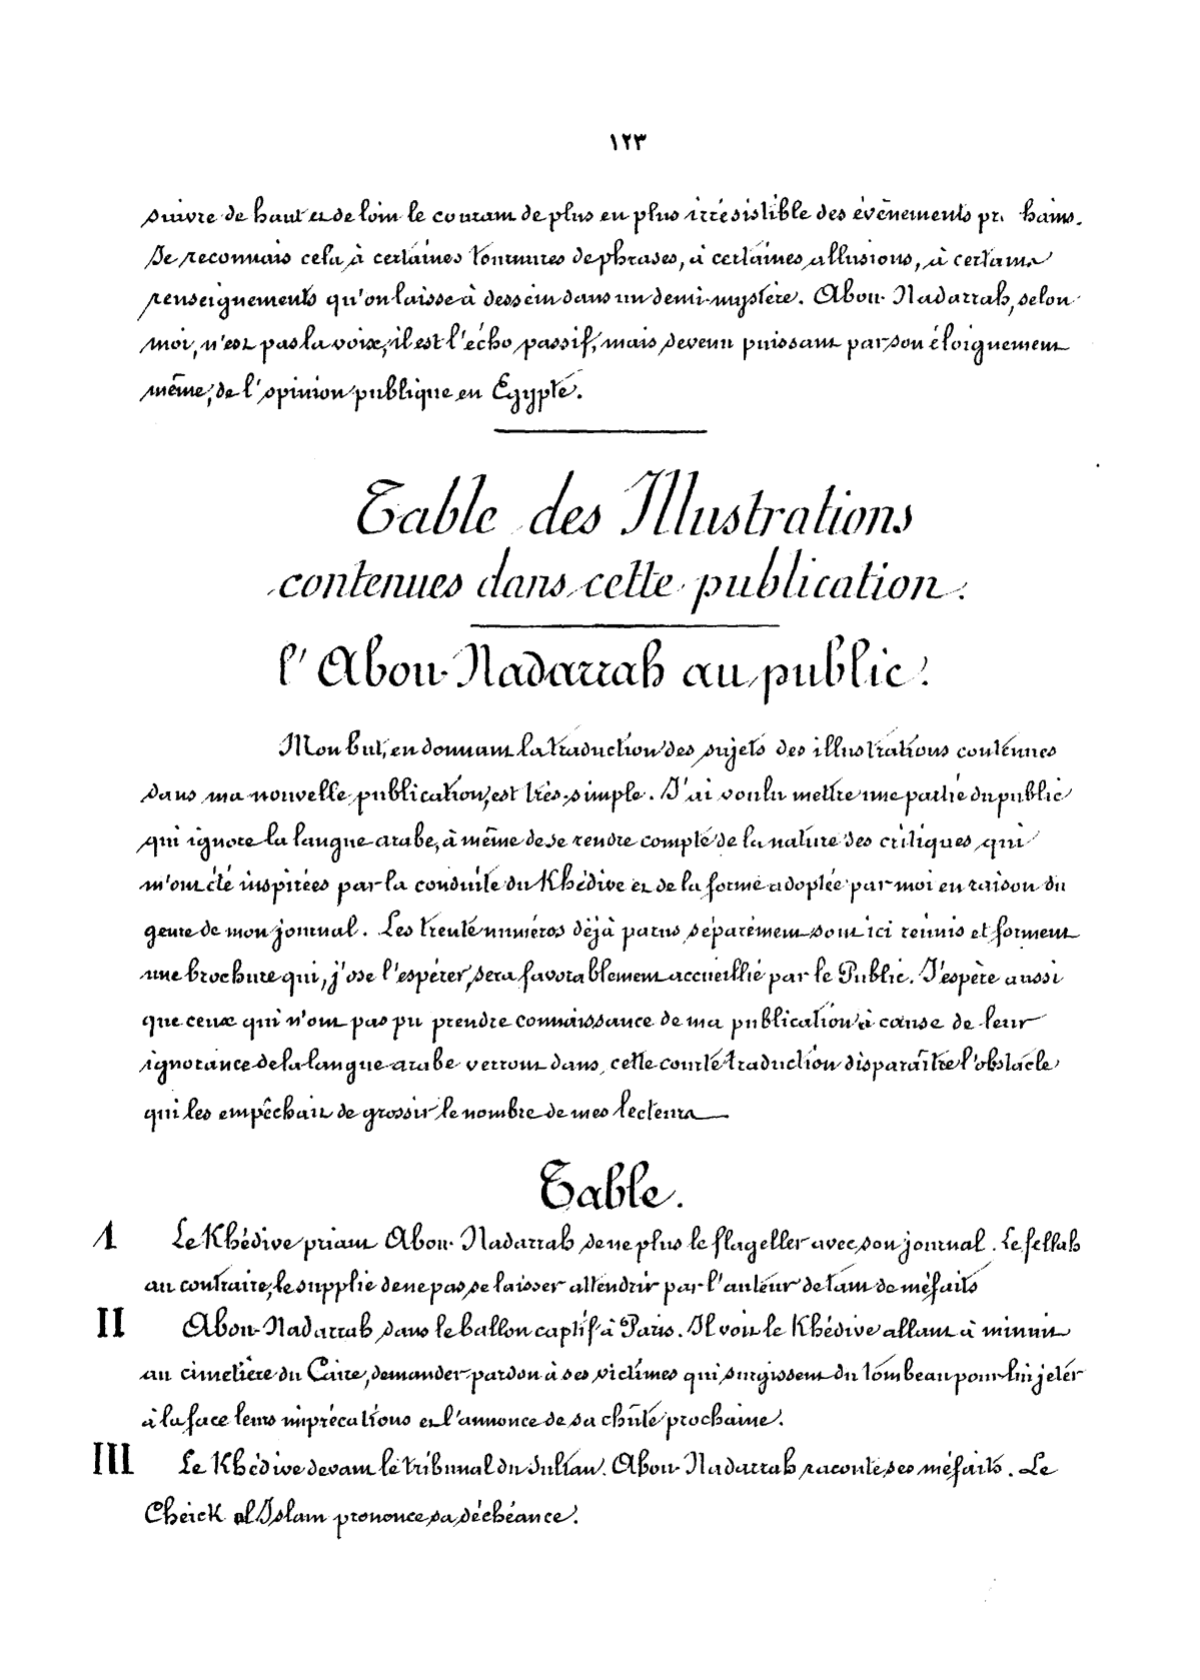 ١٢٣
suivre de haut et de loin le courant de plus en plus irrésistible des évènements pr hains.
Je reconnais cela, à certaines tournures de phrases, à certaines allusions, à certains
renseignements qu'on laisse à dessein dans un demi-mystère. Abou Nadarrah, selon
moi, n'est pas la voix, il est l'écho passif, mais devenu puissant par son éloignement
même, de l'opinion publique en Egypte.
Table des Illustrations
contenues dans cette publication.
l'Abou Nadarrah au public.
Mon but, en donnant la traduction des sujets des illustrations contenues
dans ma nouvelle publication, est très-simple. J'ai voulu mettre une partie du public
qui ignore la langue arabe, à même de se rendre compte de la nature des critiques qui
m'ont été inspirées par la conduite du Khédive et de la forme adoptée par moi en raison du
genre de mon journal. Les trente numéros déjà parus séparément sont ici réunis et forment
une brochure qui, j'ose l'espérer, sera favorablement accueillie par le Public. J'espère aussi
que ceux qui n'ont pas pu prendre connaissance de ma publication à cause de leur
ignorance de la langue arabe verront dans cette courte traduction disparaître l'obstacle
qui les empêchait de grossir le nombre de mes lecteurs
Table.
I Le Khédive priant Abou Nadarrah de ne plus le flageller avec son journal. Le fellah
au contraire, le supplie de ne pas se laisser attendrir par l'auteur de tant de méfaits
II Abou Nadarrah dans le ballon captif à Paris. Il voit le Khédive allant à minuit
au cimetière du Caire, demander pardon à ses victimes qui surgissent du tombeau pour lui jeter
à la face leurs imprécations et l'annonce de sa chûte prochaine.
III Le Khédive devant le tribunal du Sultan. Abou Nadarrah raconte ses méfaits. Le
Cheick al Islam prononce sa déchéance.